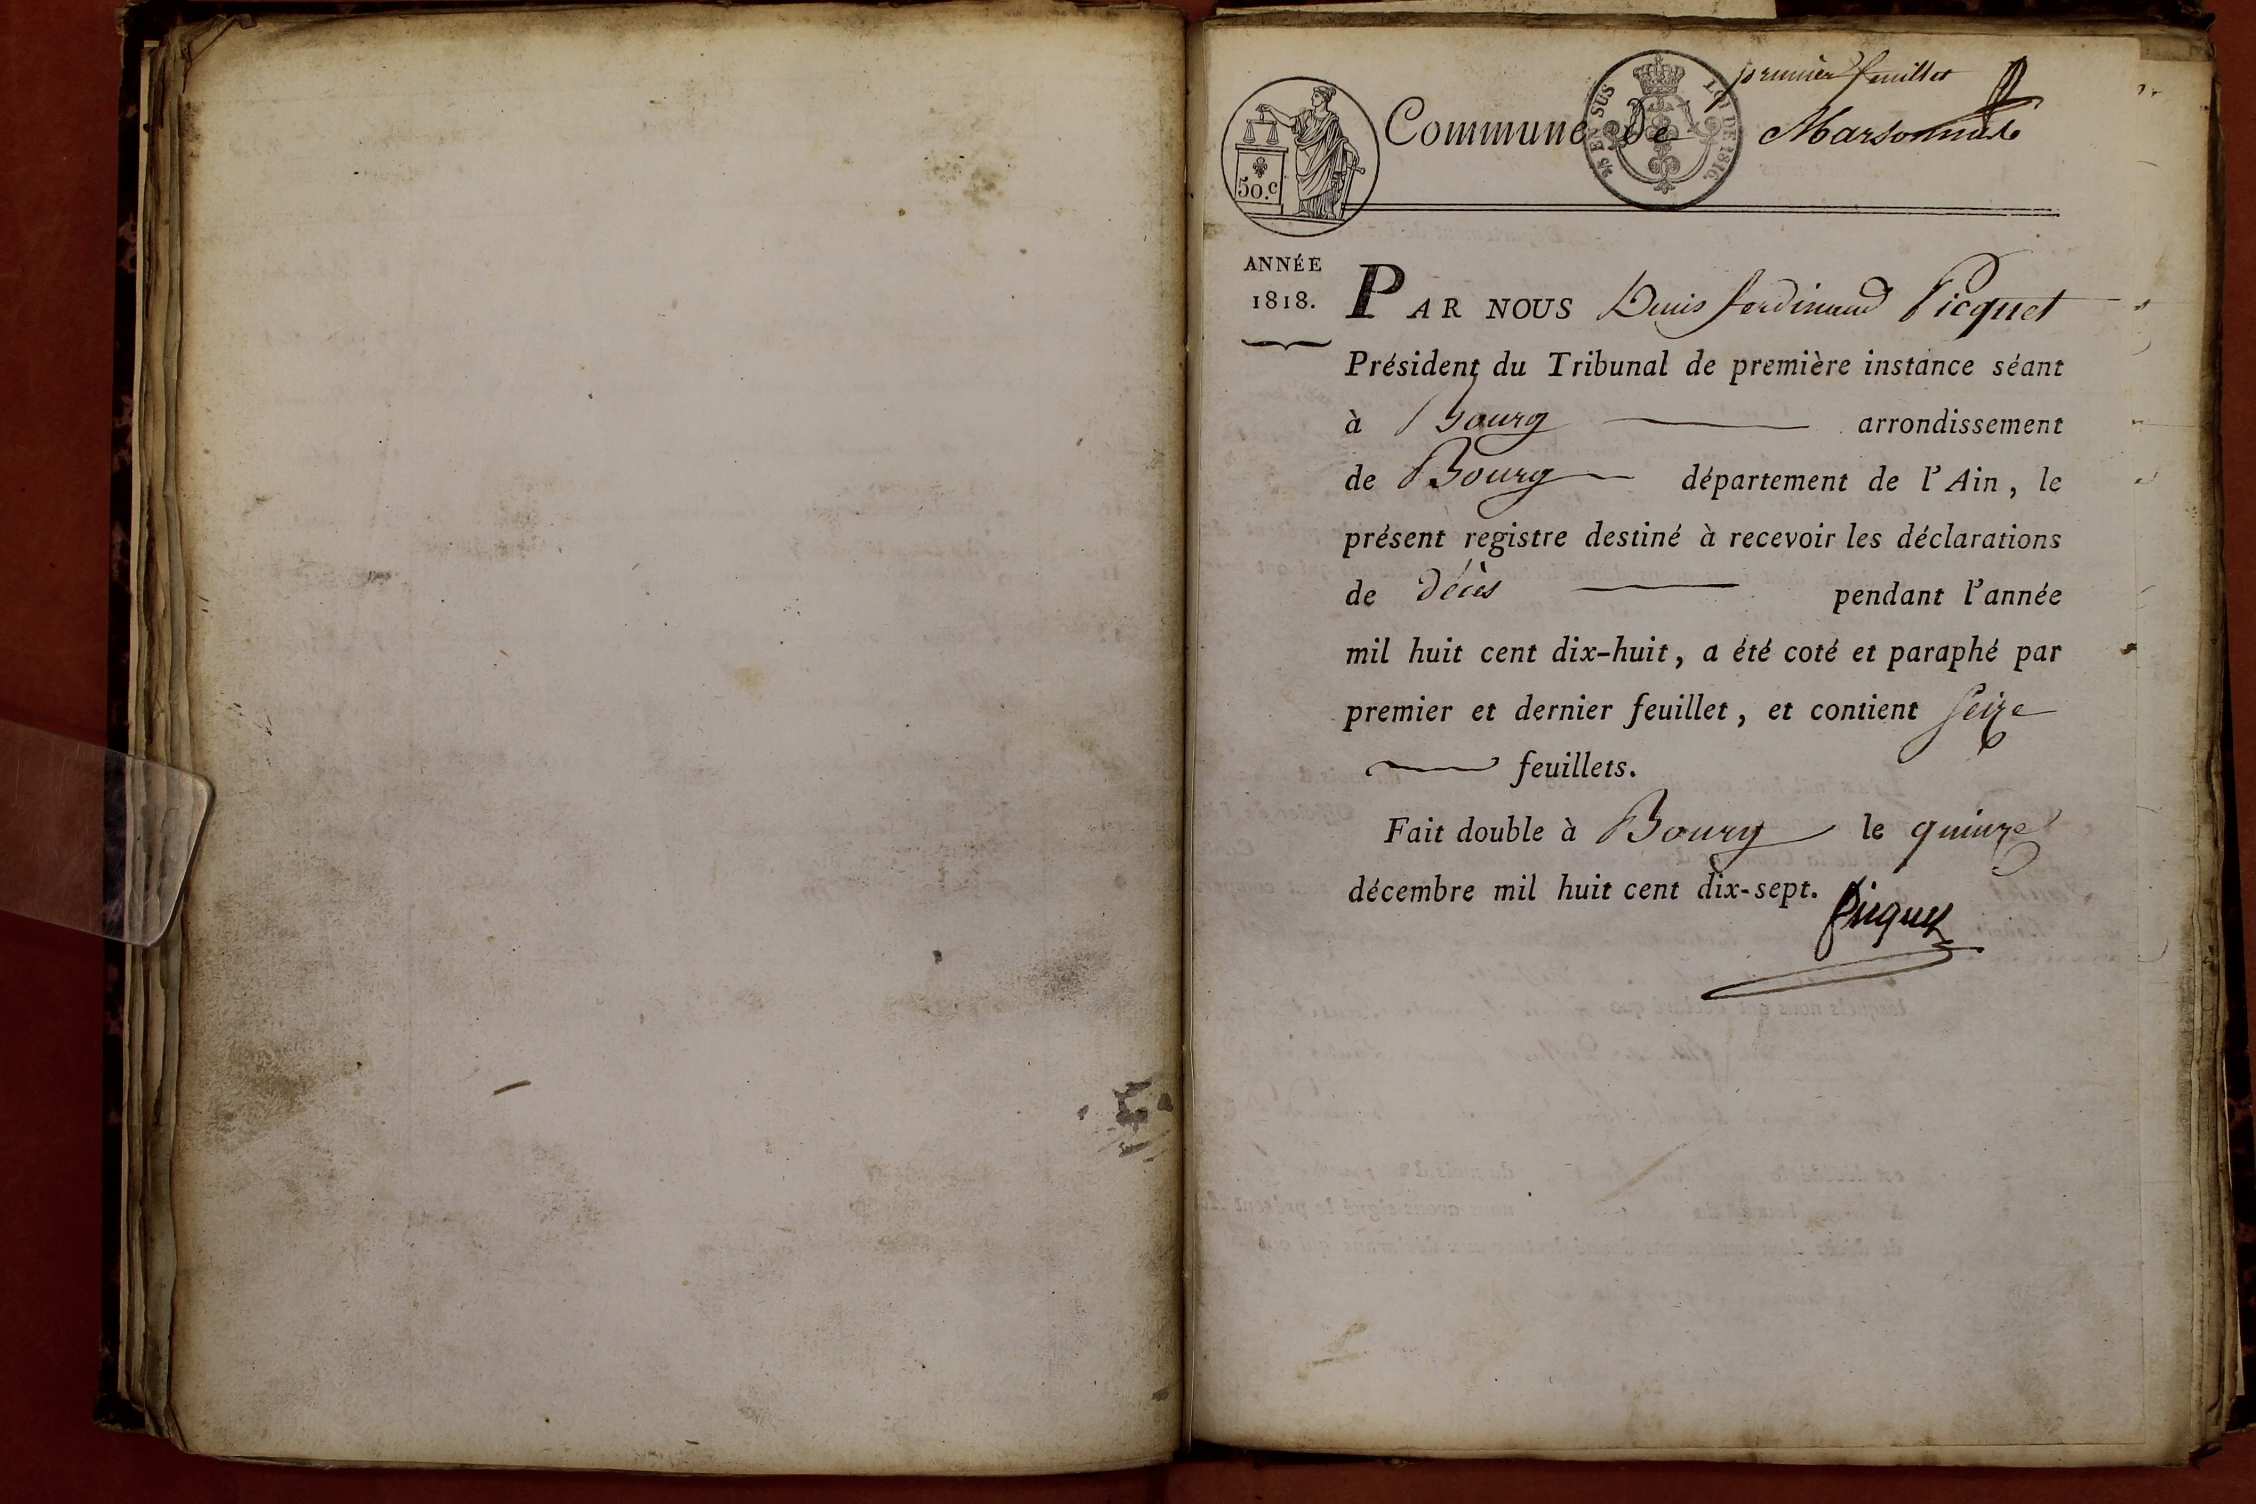 premier feuillet
Commune de Marsonnas
50.c
¼ EN SUS
LOI DE 1816.
ANNÉE
1818.
PAR NOUS Denis ferdinand Picquet
Président du Tribunal de première instance séant
à Bourg arrondissement
de Bourg département de l'Ain, le
présent registre destiné à recevoir les déclarations
de décès pendant l'année
mil huit cent dix-huit, a été coté et paraphé par
premier et dernier feuillet, et contient seize
feuillets.
Fait double à Bourg le quinze
décembre mil huit cent dix-sept.
Picquet